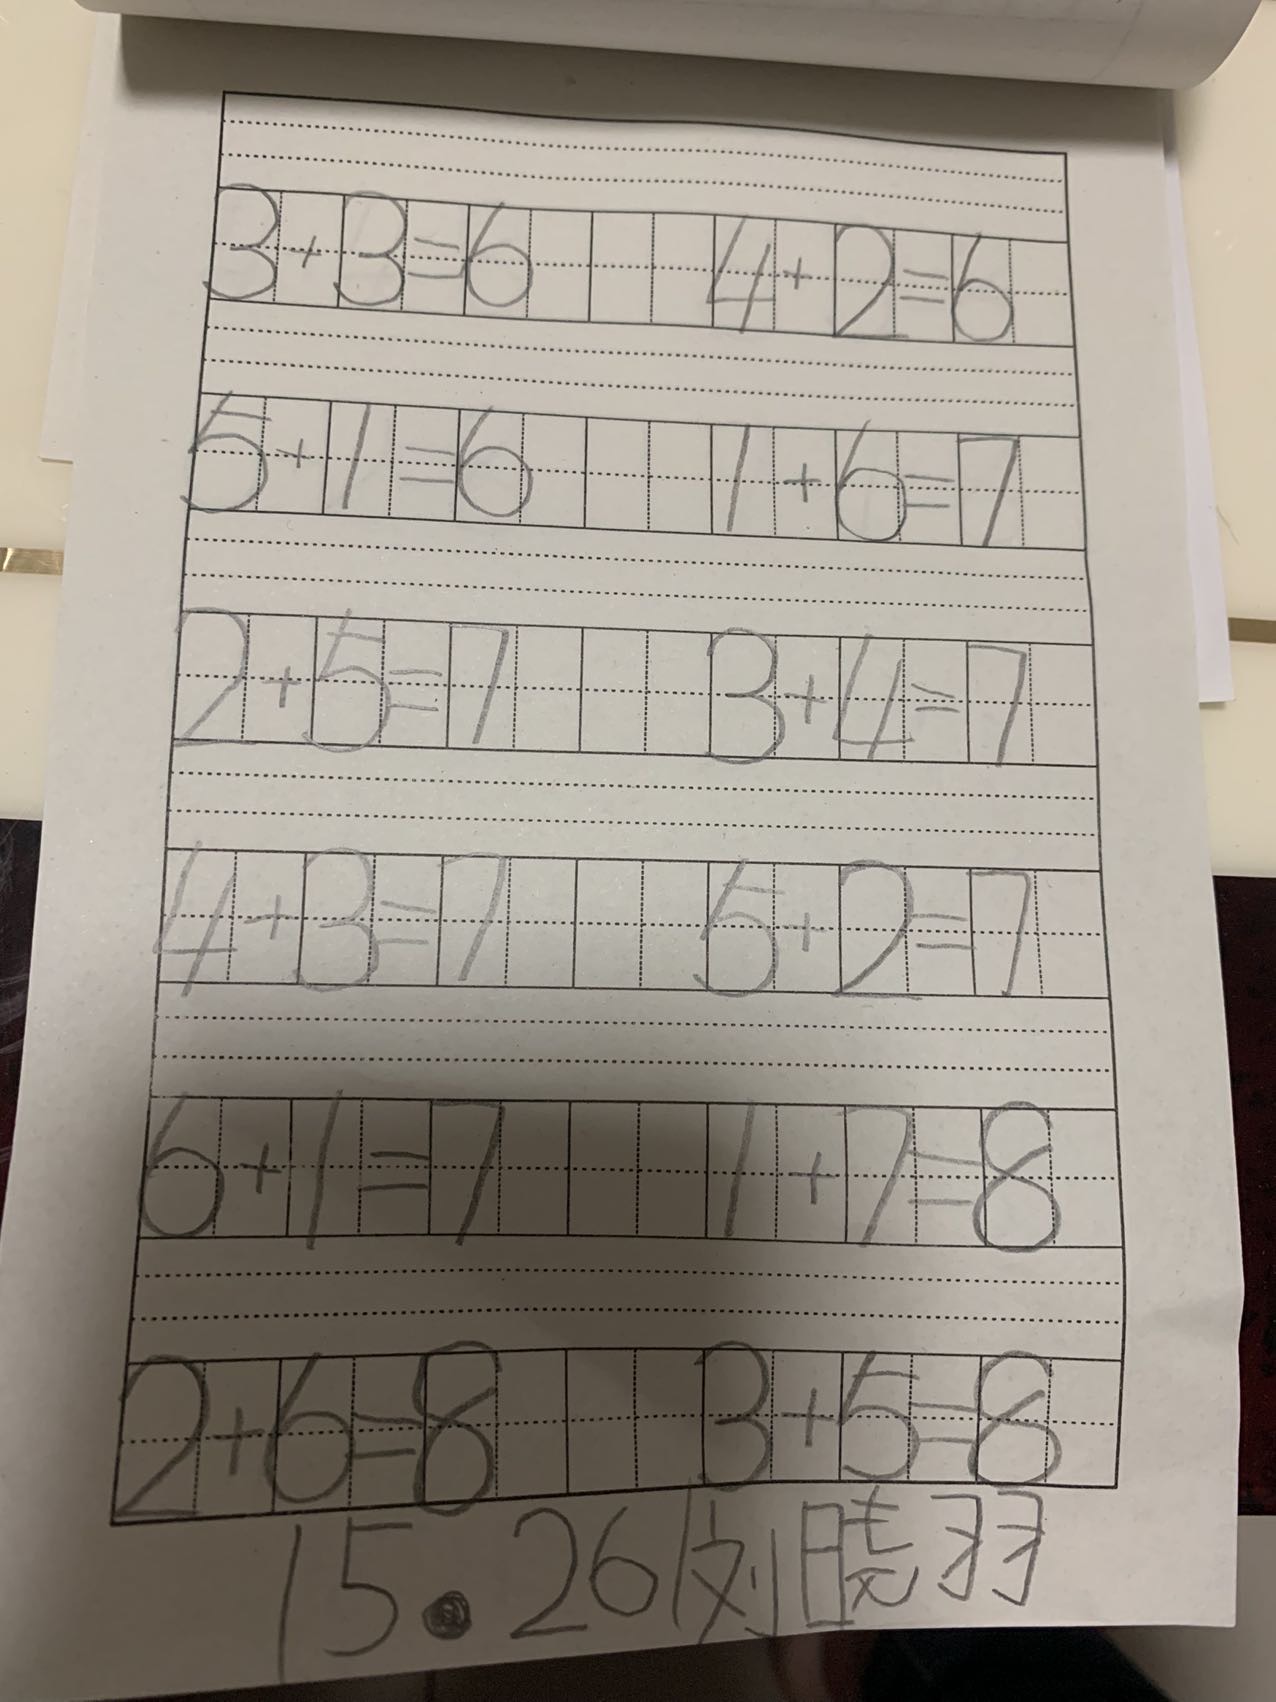 3+3=6 4+2=6
5+1=6 1+6=7
2+5=7 3+4=7
4+3=7 5+2=7
6+1=7 1+7=8
2+6=8 3+5=8
15.26 刘晓羽